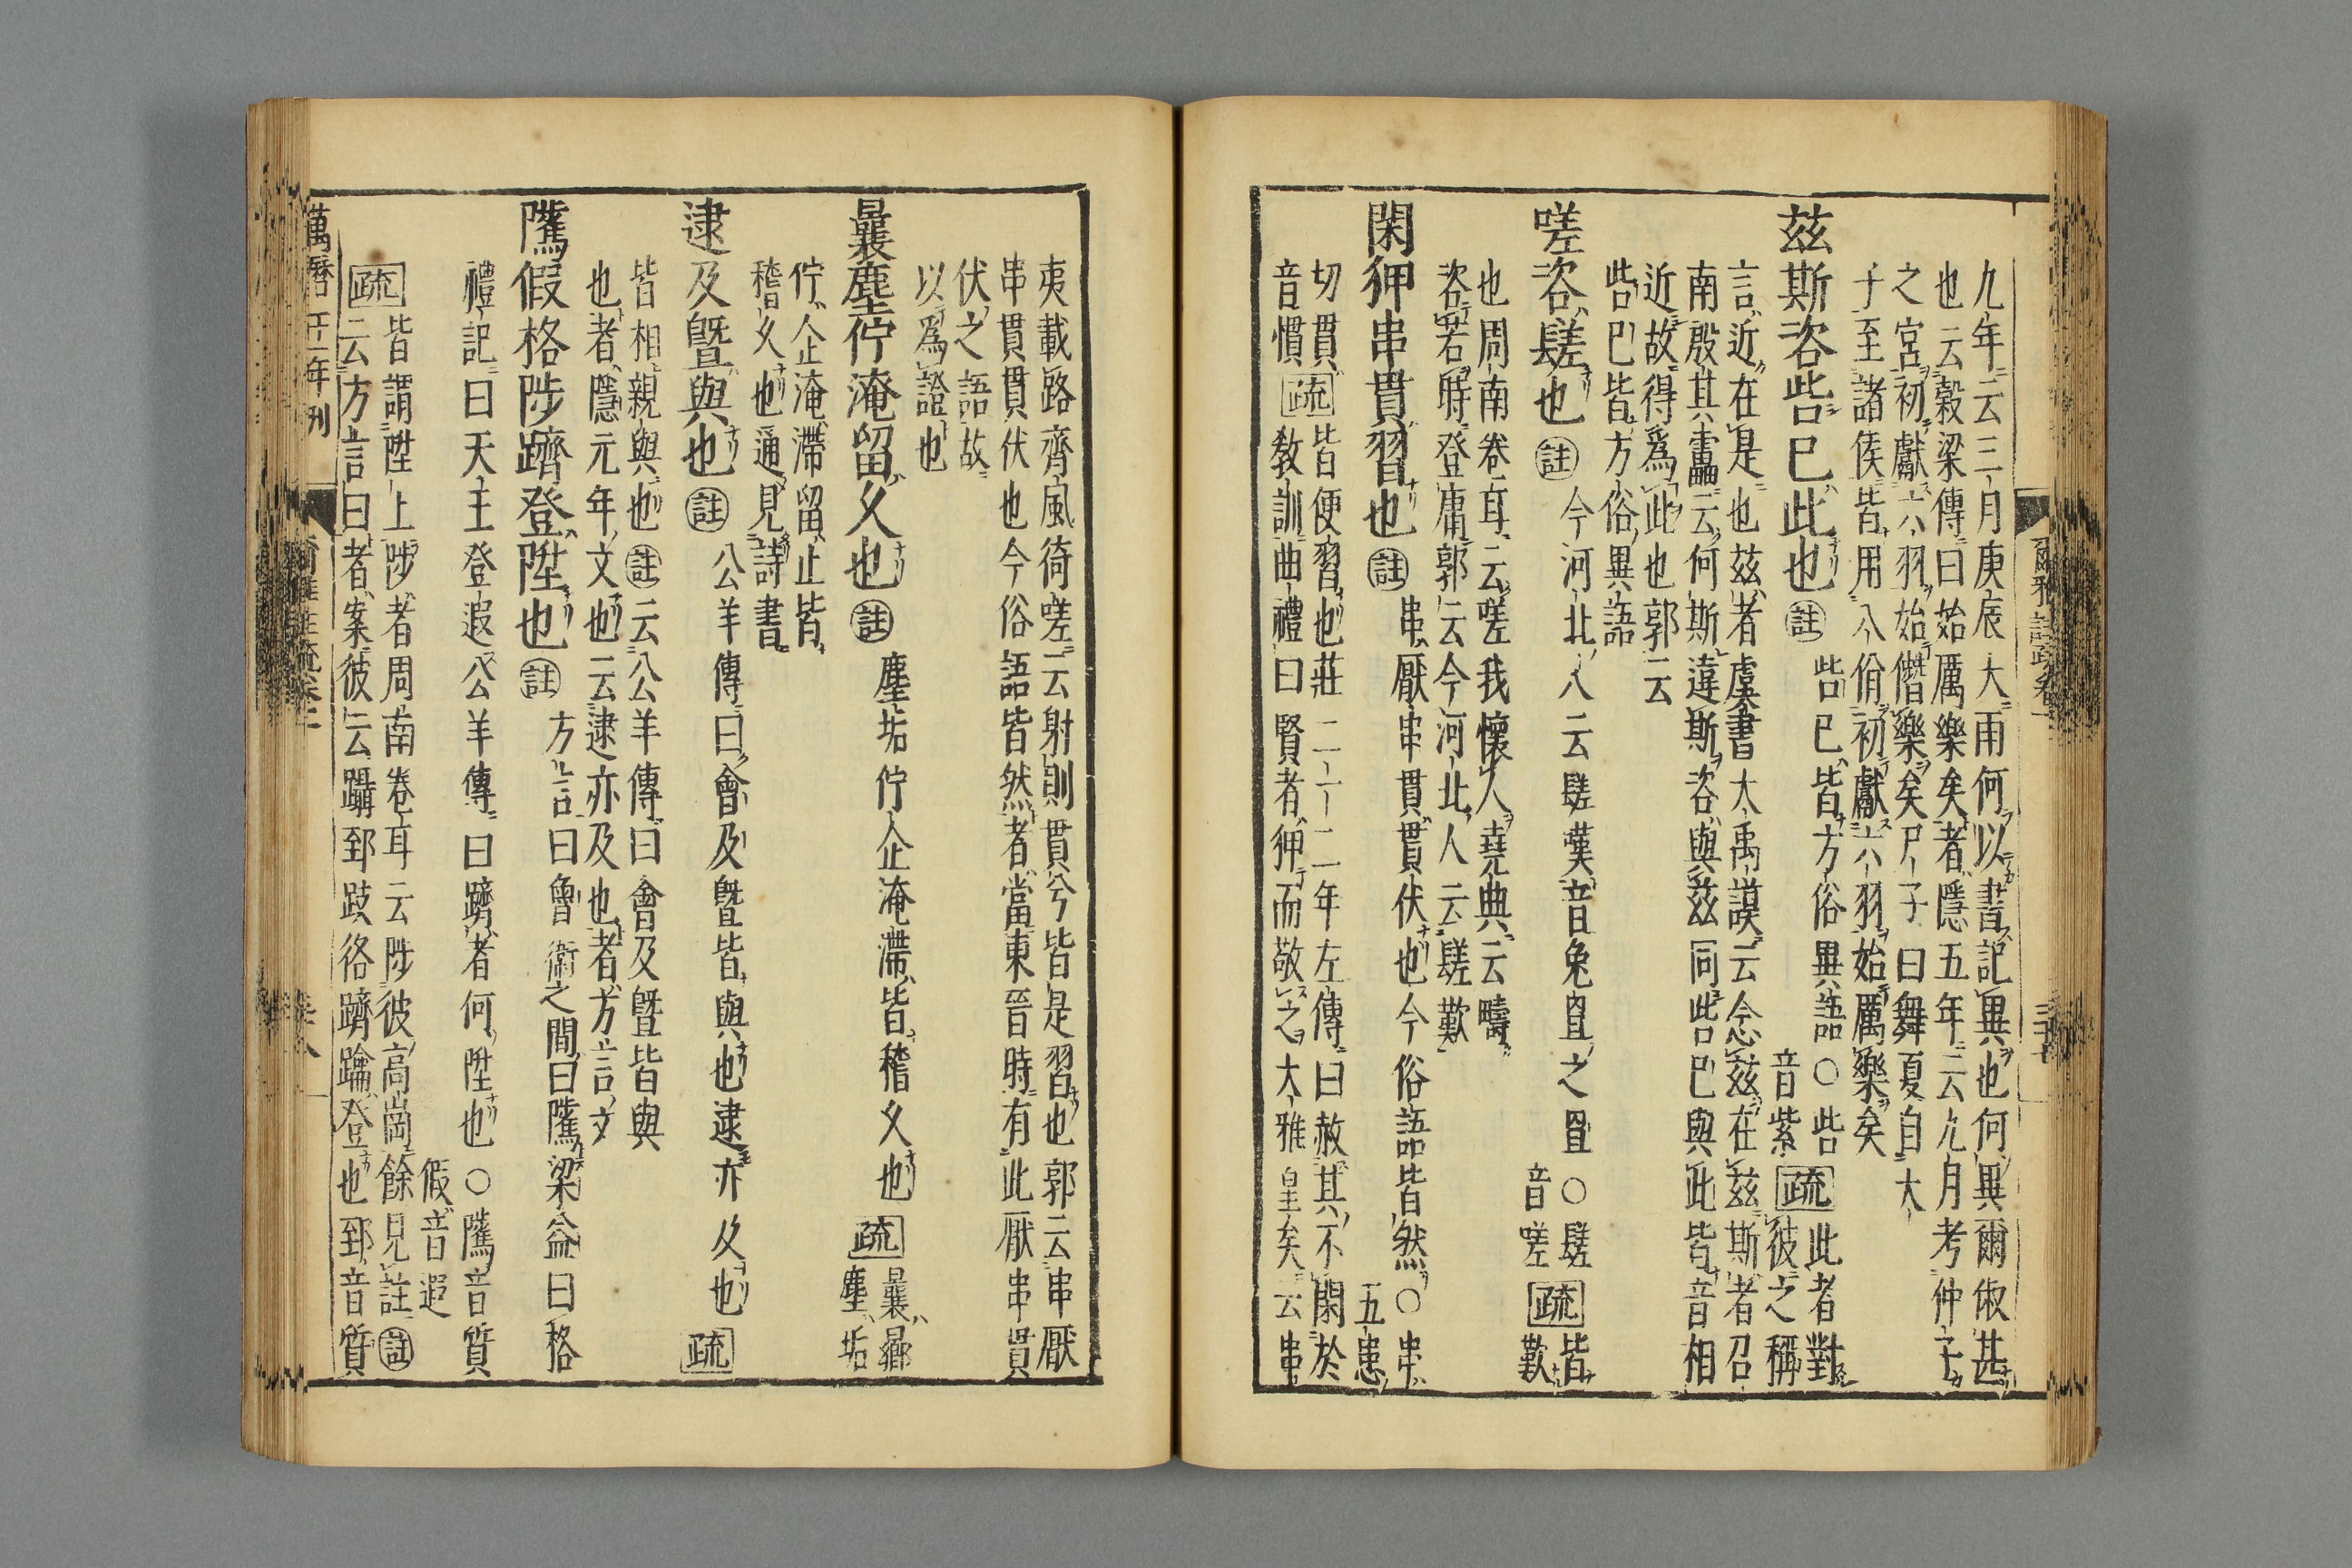 九年云三月庚辰大雨何以書記異也何異爾俶甚
也云穀梁傳曰始厲樂矣者隱五年云九月考仲子
之宮初獻六羽始僭樂矣尸子曰舞夏自大
子至諸侯皆用八佾初獻六羽始厲樂矣
茲斯咨呰已此也
註
呰已皆方俗異語○呰
音紫
疏
此者對
彼之稱
言近在是也茲者虞書大禹謨云念茲在茲斯者召
南殷其靁云何斯違斯咨與茲同呰已與此皆音相
近故得為此也郭云
呰已皆方俗異語
嗟咨䰈也
註
今河北人云䰈嘆音兔罝之罝○䰈
音嗟
疏
皆
歎
也周南卷耳云嗟我懷人堯典云疇
咨若時登庸郭云今河北人云䰈歎
閑狎串貫習也
註
串厭串貫貫伏也今俗語皆然○串
五患
切貫
音慣
疏
皆便習也莊二十二年左傳曰赦其不閑於
教訓曲禮曰賢者狎而敬之大雅皇矣云串
夷載路齊風猗嗟云射則貫兮皆是習也郭云串厭
串貫貫伏也今俗語皆然者當東晉時有此厭串貫
伏之語故
以為證也
曩塵佇淹留久也
註
塵垢佇企淹滯皆稽久也
疏
曩曏
塵垢
佇企淹滯留止皆
稽久也通見詩書
逮及暨與也
註
公羊傳曰會及暨皆與也逮亦及也
疏
皆相親與也註云公羊傳曰會及暨皆與
也者隱元年文也云逮亦及也者方言文
騭假格陟躋登陞也
註
方言曰魯衛之間曰騭梁益曰格
禮記曰天王登遐公羊傳曰躋者何陞也○騭音質
假音遐
疏
皆謂陞上陟者周南卷耳云陟彼高崗餘見註註
云方言曰者案彼云躡郅跂䠏躋踚登也郅音質
爾雅註疏卷一
三十七
萬曆二十一年刊